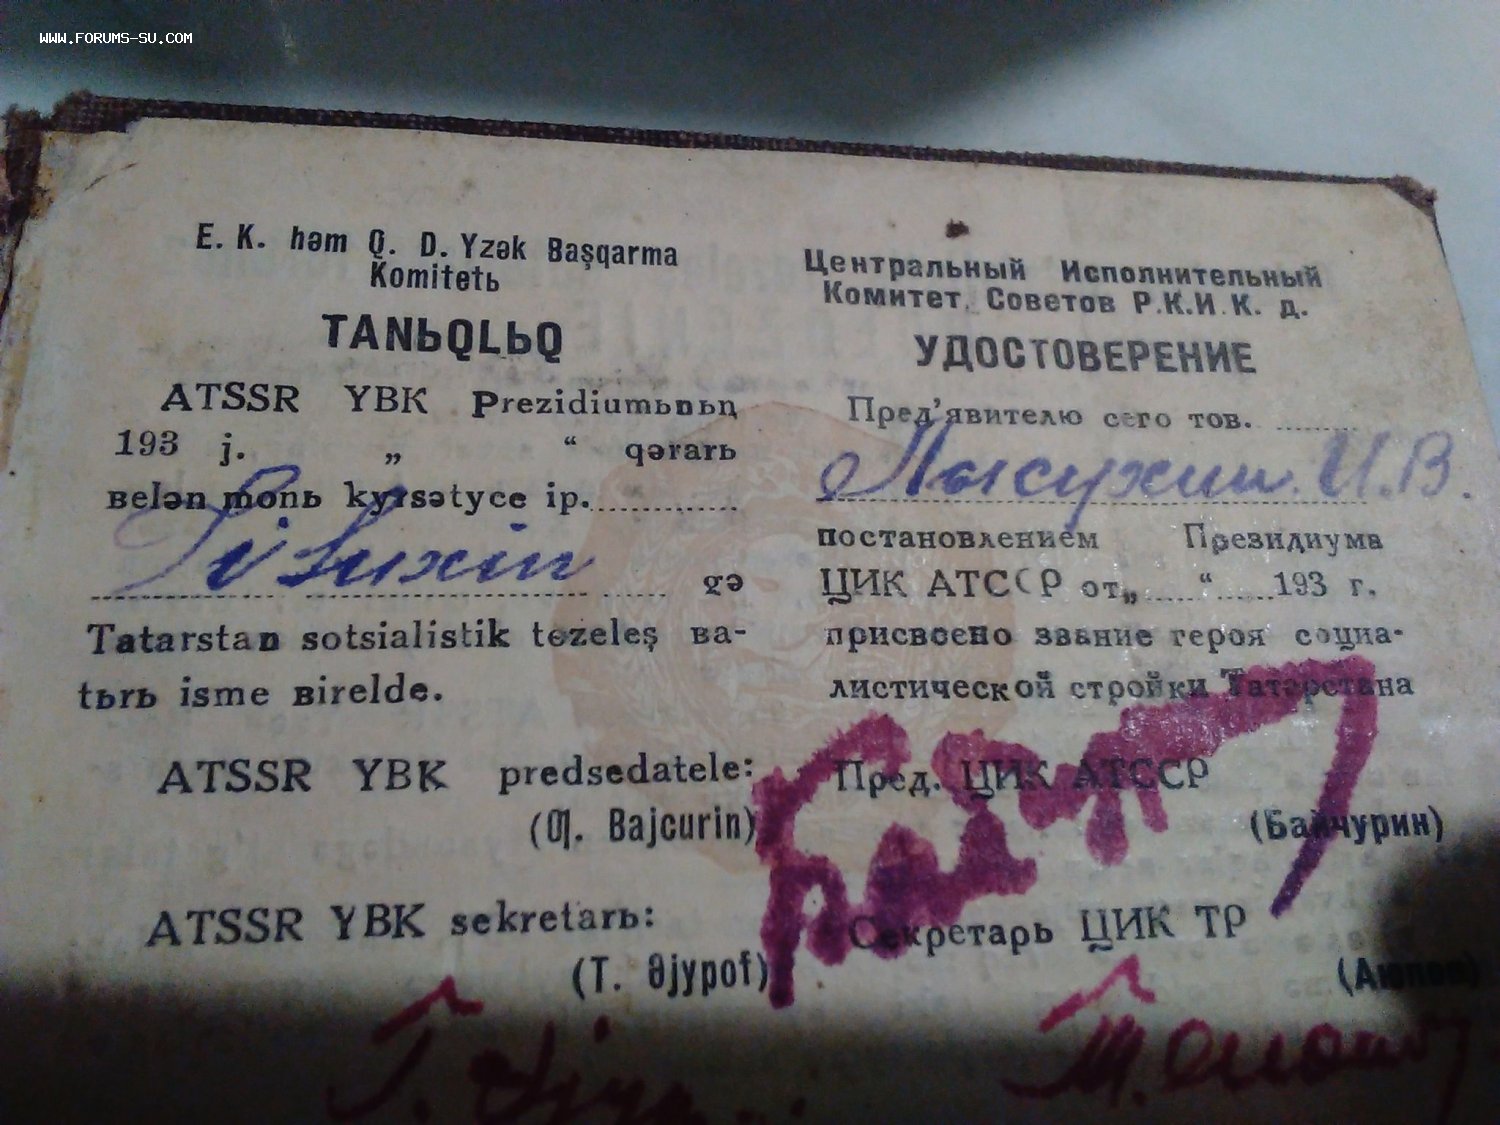 WWW.FORUMS-SU.COM
E. K. həm Q. D. Yzək Başqarma
Komitetь
TANЬQLЬQ
ATSSR YBK Prezidiumьnьꞑ
193 j. „ “ qərarь
ʙelən monь kyrsətyce ip.
gə
Tatarstan sotsialistik tɵzeleş ʙa-
tьrь isme ʙirelde.
ATSSR YBK predsedatele:
(Ƣ. Bajcurin)
ATSSR YBK sekretarь:
(T. Əjypof)
Центральный Исполнительный
Комитет Советов Р.К.И К. д.
УДОСТОВЕРЕНИЕ
Пред’явителю сего тов.
Лысухин И.В.
постановлением Президиума
ЦИК АТССР от „ “ 193 г.
присвоено звание героя социа-
листической стройки Татарстана
Пред. ЦИК АТССР
(Байчурин)
Секретарь ЦИК ТР
(Аюпов)